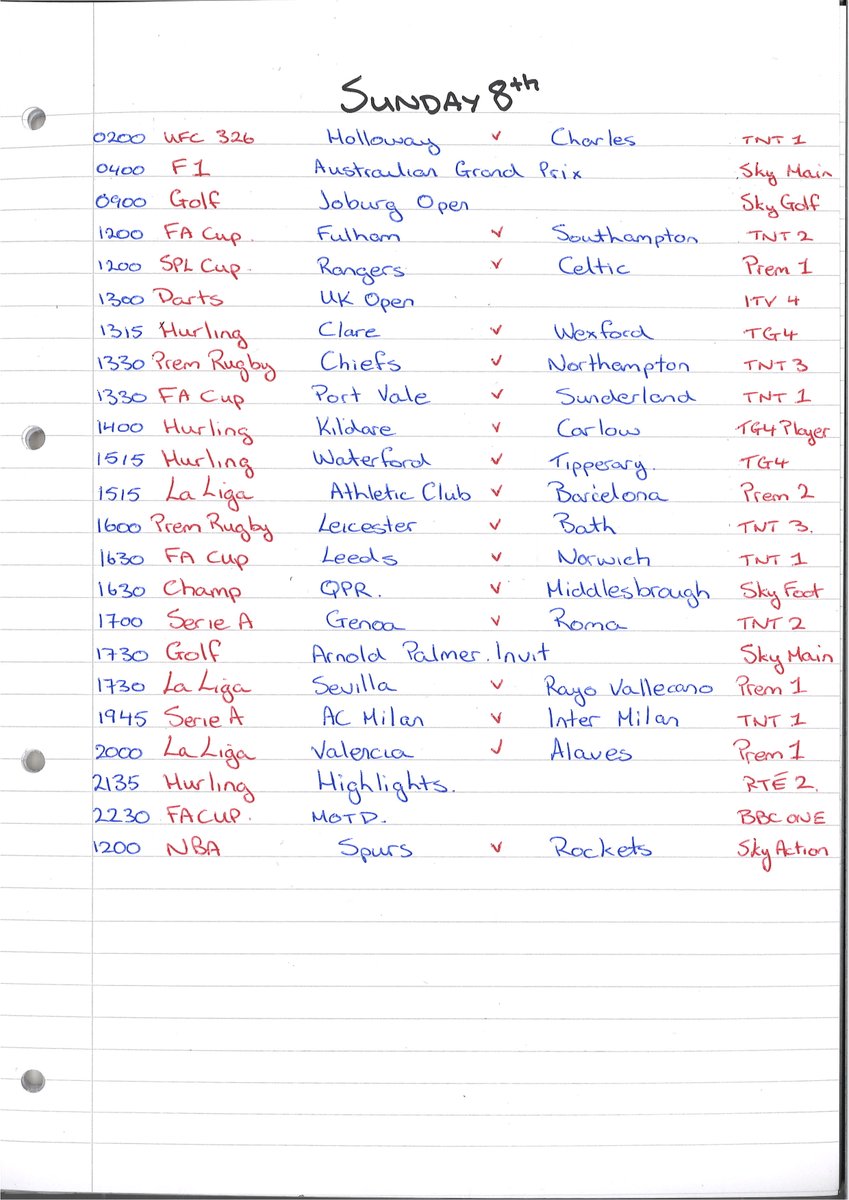 SUNDAY 8th
0200 UFC 326 Holloway v Charles TNT 1
0400 F1 Australian Grand Prix Sky Main
0900 Golf Joburg Open Sky Golf
1200 FA Cup. Fulham v Southampton TNT 2
1200 SPL Cup. Rangers v Celtic Prem 1
1300 Darts UK Open ITV 4
1315 Hurling Clare v Wexford TG4
1330 Prem Rugby Chiefs v Northampton TNT 3
1330 FA Cup Port Vale v Sunderland TNT 1
1400 Hurling Kildare v Carlow TG4 Player
1515 Hurling Waterford v Tipperary. TG4
1515 La Liga Athletic Club v Barcelona Prem 2
1600 Prem Rugby Leicester v Bath TNT 3.
1630 FA Cup Leeds v Norwich TNT 1
1630 Champ QPR. v Middlesbrough Sky Foot
1700 Serie A Genoa v Roma TNT 2
1730 Golf Arnold Palmer. Invit Sky Main
1730 La Liga Sevilla v Rayo Vallecano Prem 1
1945 Serie A AC Milan v Inter Milan TNT 1
2000 La Liga Valencia v Alaves Prem 1
2135 Hurling Highlights. RTÉ 2.
2230 FA CUP. MOTD. BBC ONE
1200 NBA Spurs v Rockets Sky Action